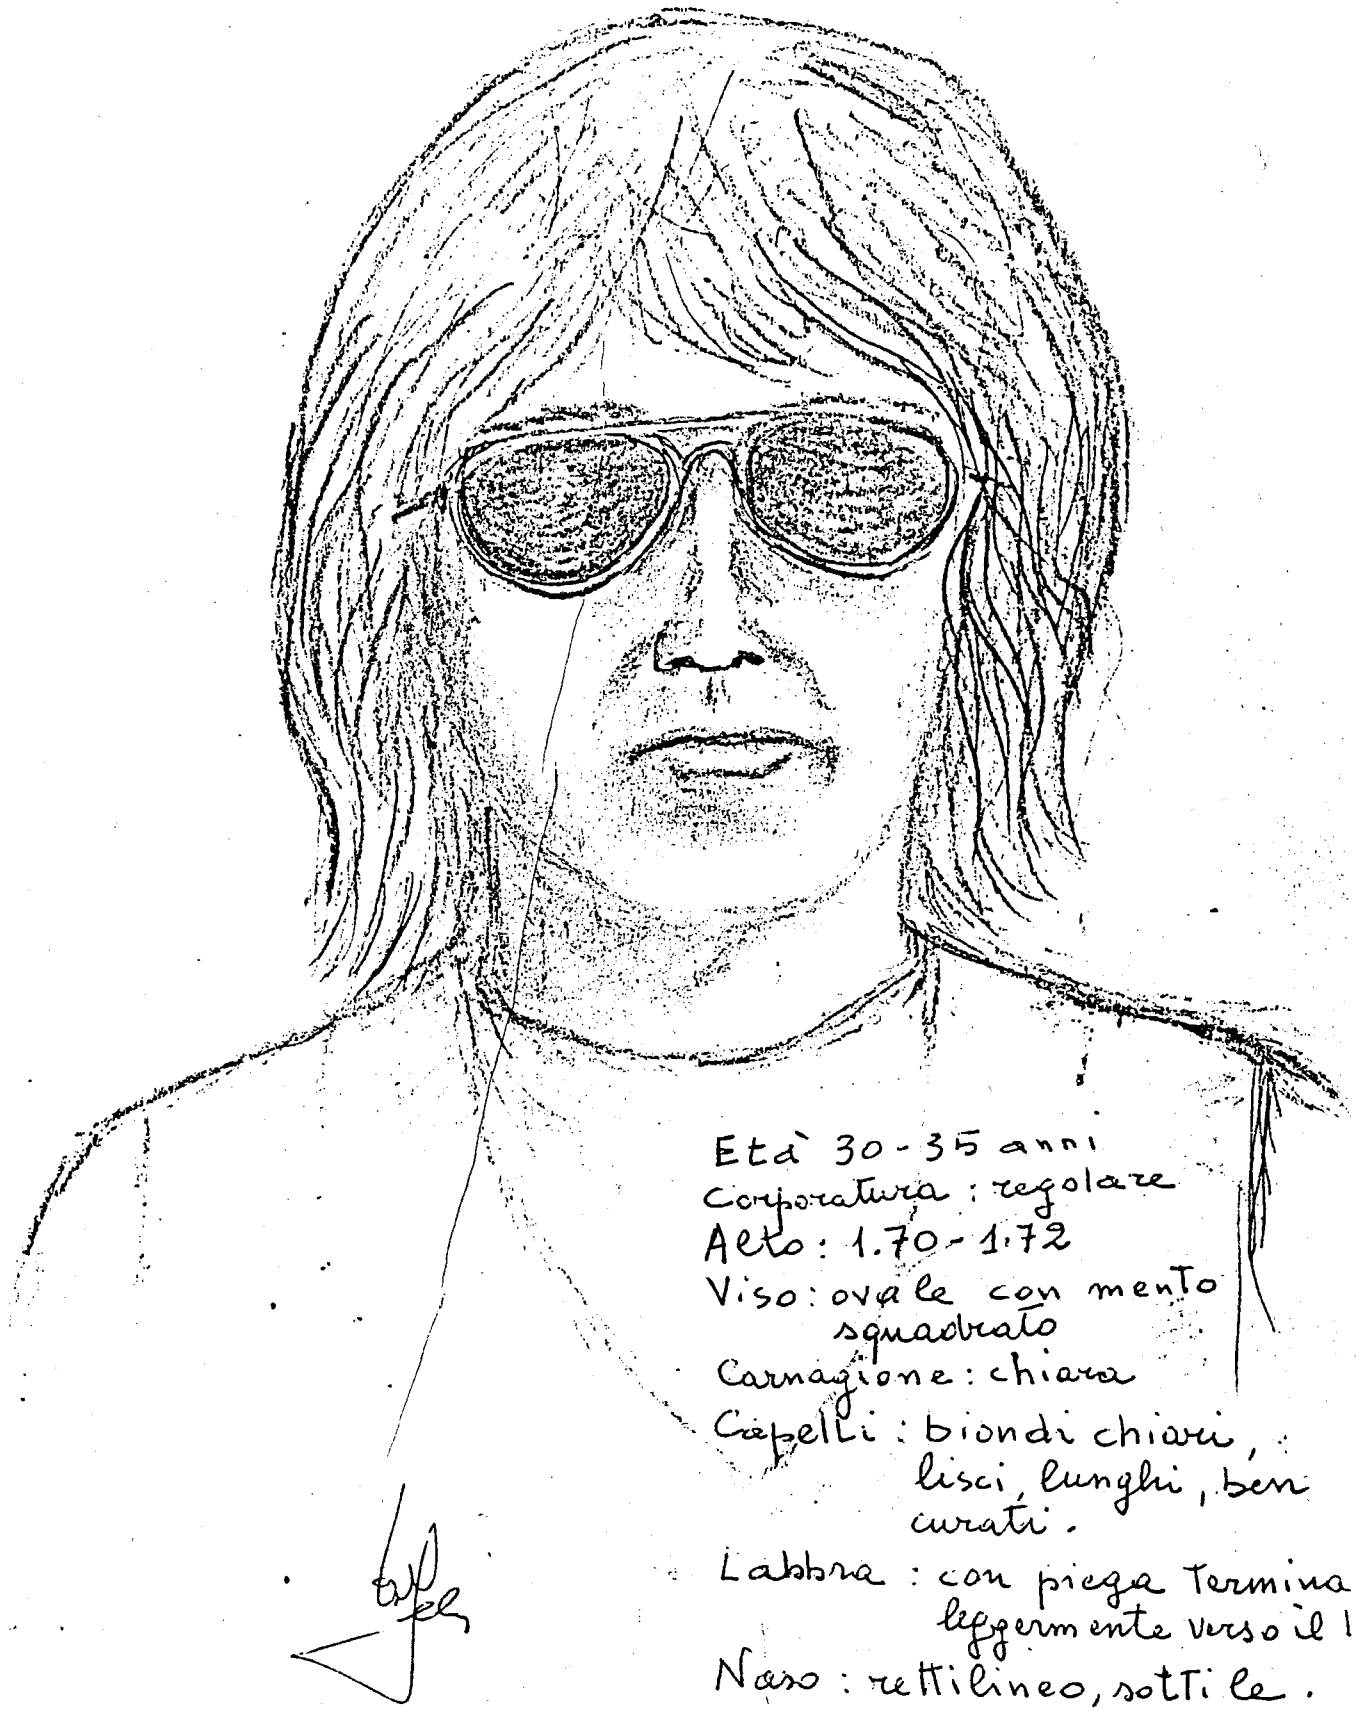 Età 30-35 anni
Corporatura: regolare
Alto: 1.70-1.72
Viso: ovale con mento
squadrato
Carnagione: chiara
Capelli: biondi chiari,
lisci, lunghi, ben
curati.
Labbra: con piega Termina
leggermente verso il
Naso: rettilineo, sottile.